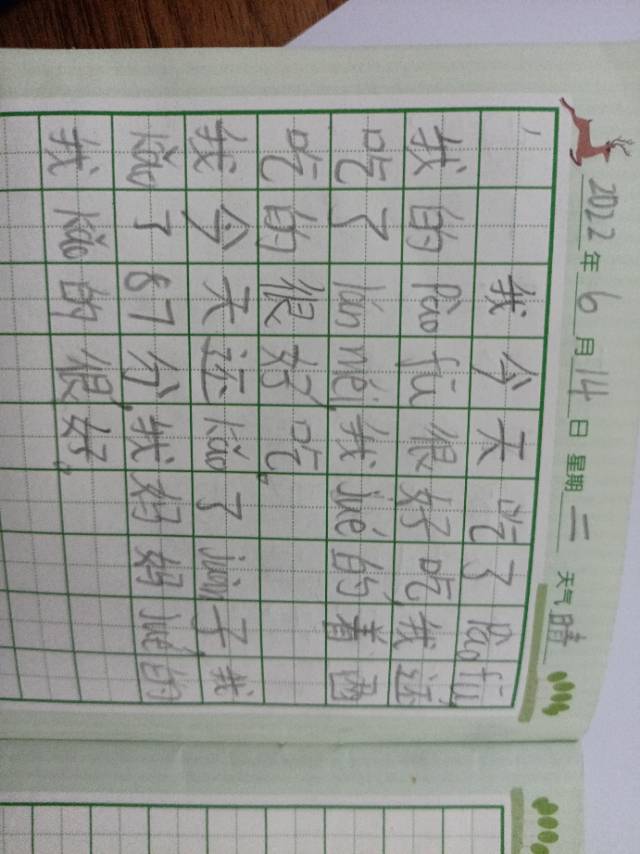 2022年6月14日 星期二 天气晴
我今天吃了pào fū,
我的pào fū很好吃,我还
吃了lán méi,我jué的着两
吃的很好吃。
我今天还kǎo了juàn子,我
kǎo了87分,我好好jué的
我kǎo的很好。